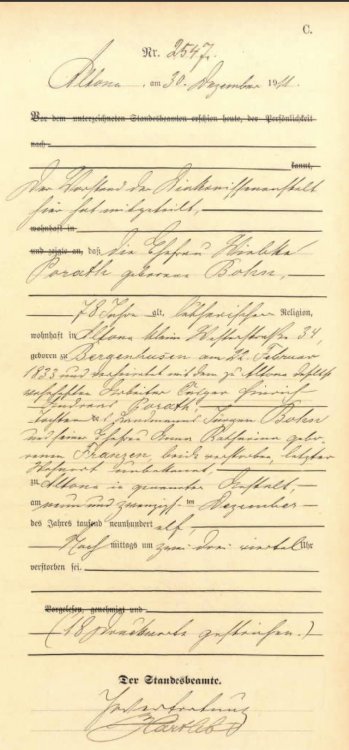 C.
Nr. 2547.
Altona, am 30. Dezember 1911.
Vor dem unterzeichneten Standesbeamten erschien heute, der Persönlichkeit
nach
kannt,
Der Vorstand der Diakonissenanstalt
hier hat mitgeteilt,
wohnhaft in
und zeigte an, daß die Ehefrau Wiebke
Porath geborene Bohn,
78 Jahre alt, lutherischer Religion,
wohnhaft in Altona kleine Westerstraße 34,
geboren zu Bergenhusen am 22. Februar
1833 und verheiratet mit dem zu Altona
Arbeiter Hinrich
Andreas Porath,
Tochter des Bohn
und seiner Ehefrau Anna Katharina gebo-
renen Franzen, beide verstorben, letzter
Wohnort unbekannt,
zu Altona in genannter Anstalt,
am neun und zwanzigsten Dezember
des Jahres tausend neunhundert elf,
Nachmittags um zwei drei viertel Uhr
verstorben sei.
Vorgelesen, genehmigt und
(18 Druckworte gestrichen.)
Der Standesbeamte.
In Vertretung